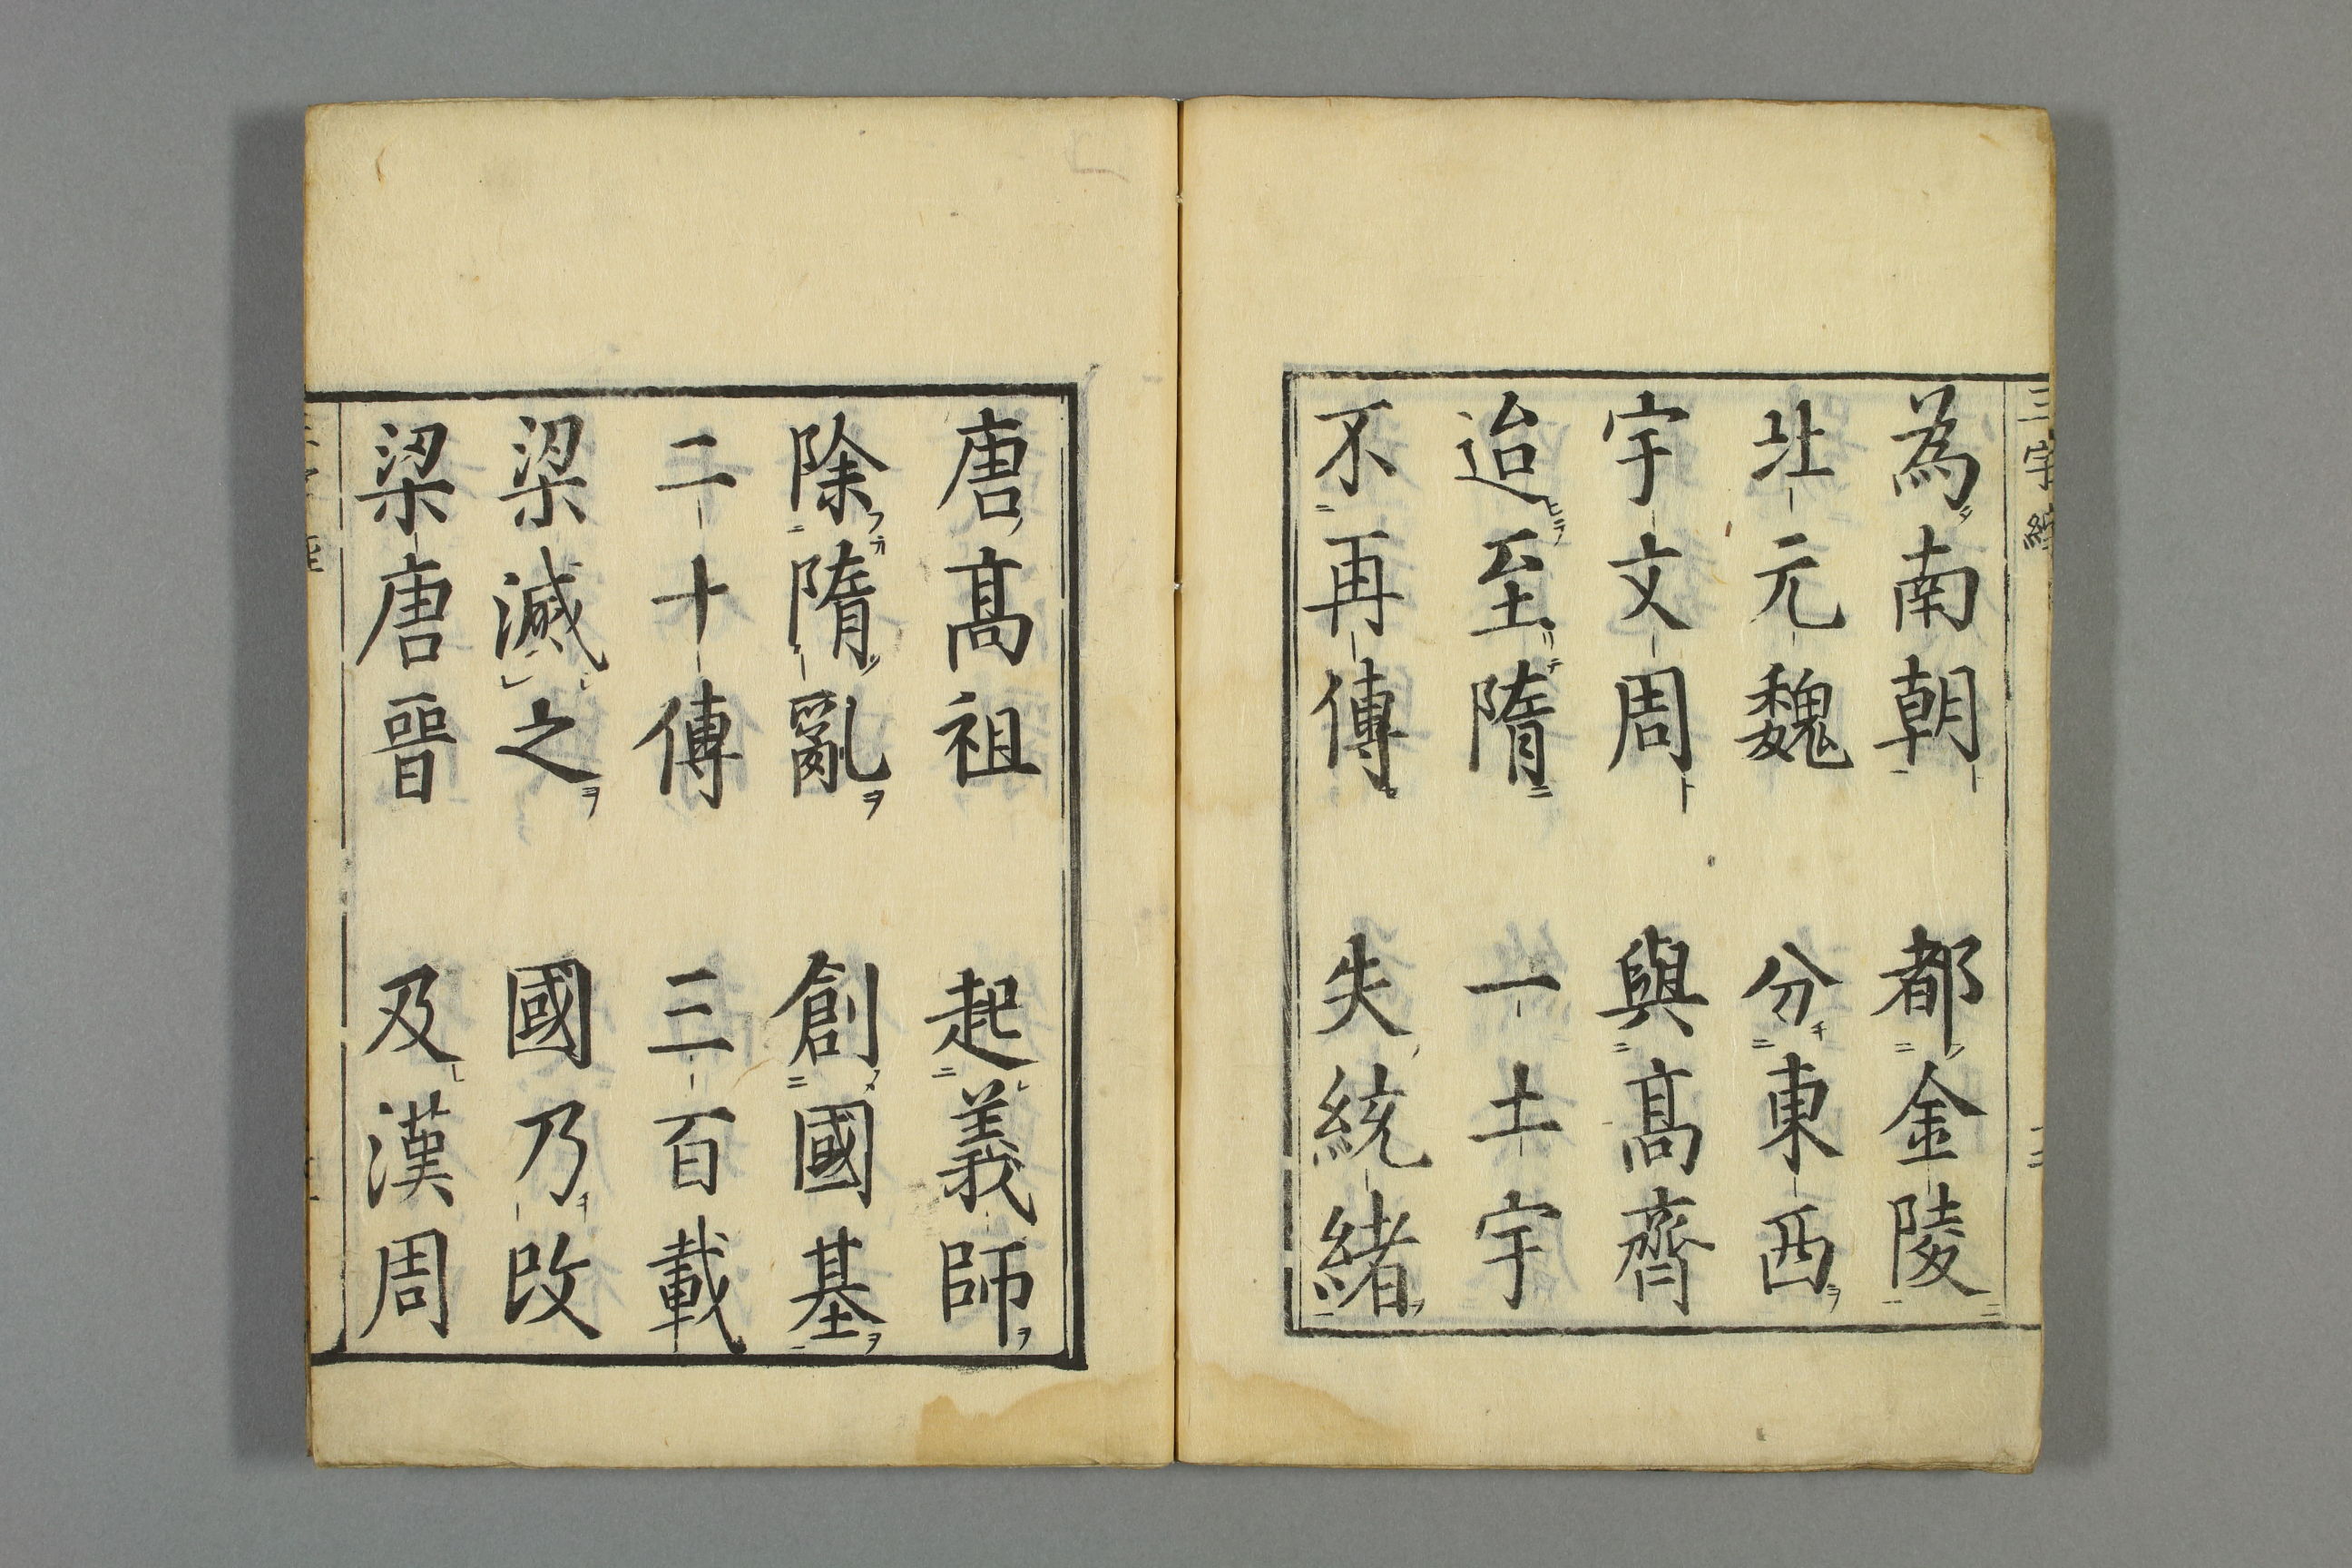 三字經
為南朝 都金陵
北元魏 分東西
宇文周 與髙齊
迨至隋 一土宇
不再傳 失統緒
唐髙祖 起義師
除隋亂 創國基
二十傳 三百載
梁滅之 國乃改
梁唐晉 及漢周